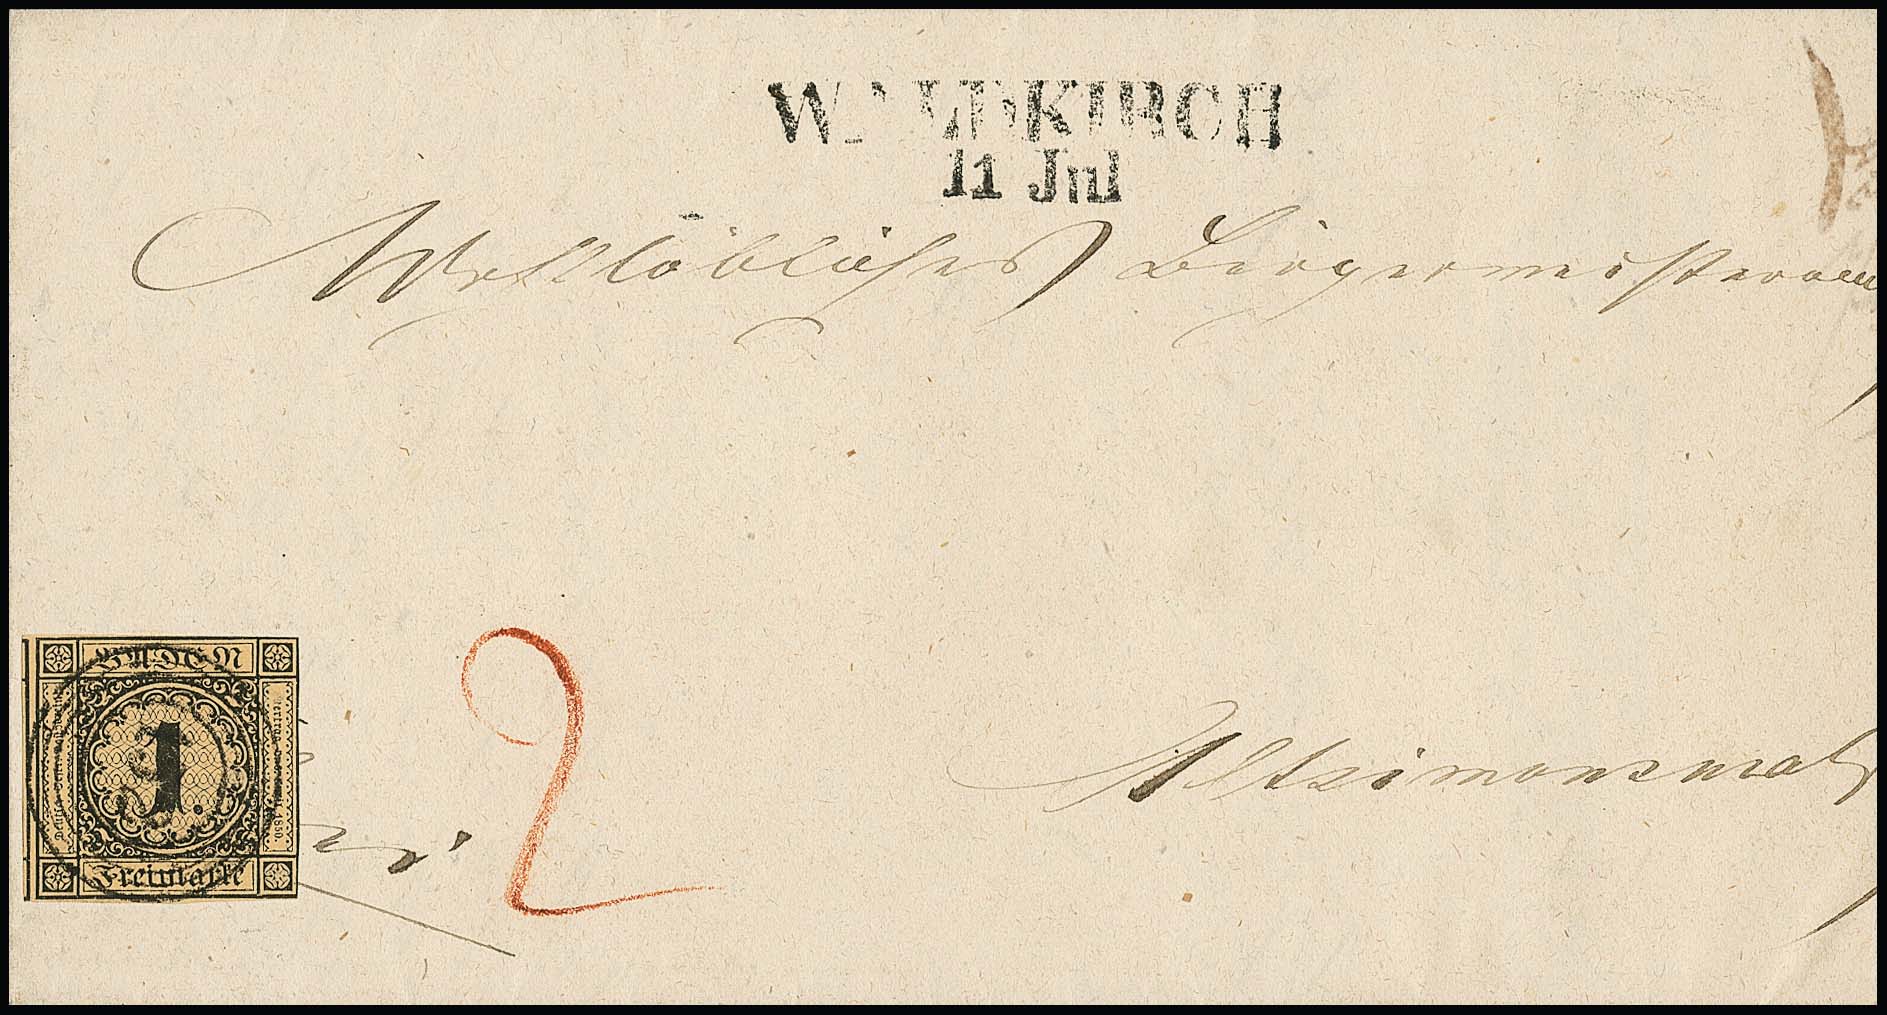 WALDKIRCH
11 Jul
Wohllöbliches Bürgermeisteramt
Altsimonswald
BADEN
1.
Freimarke
2